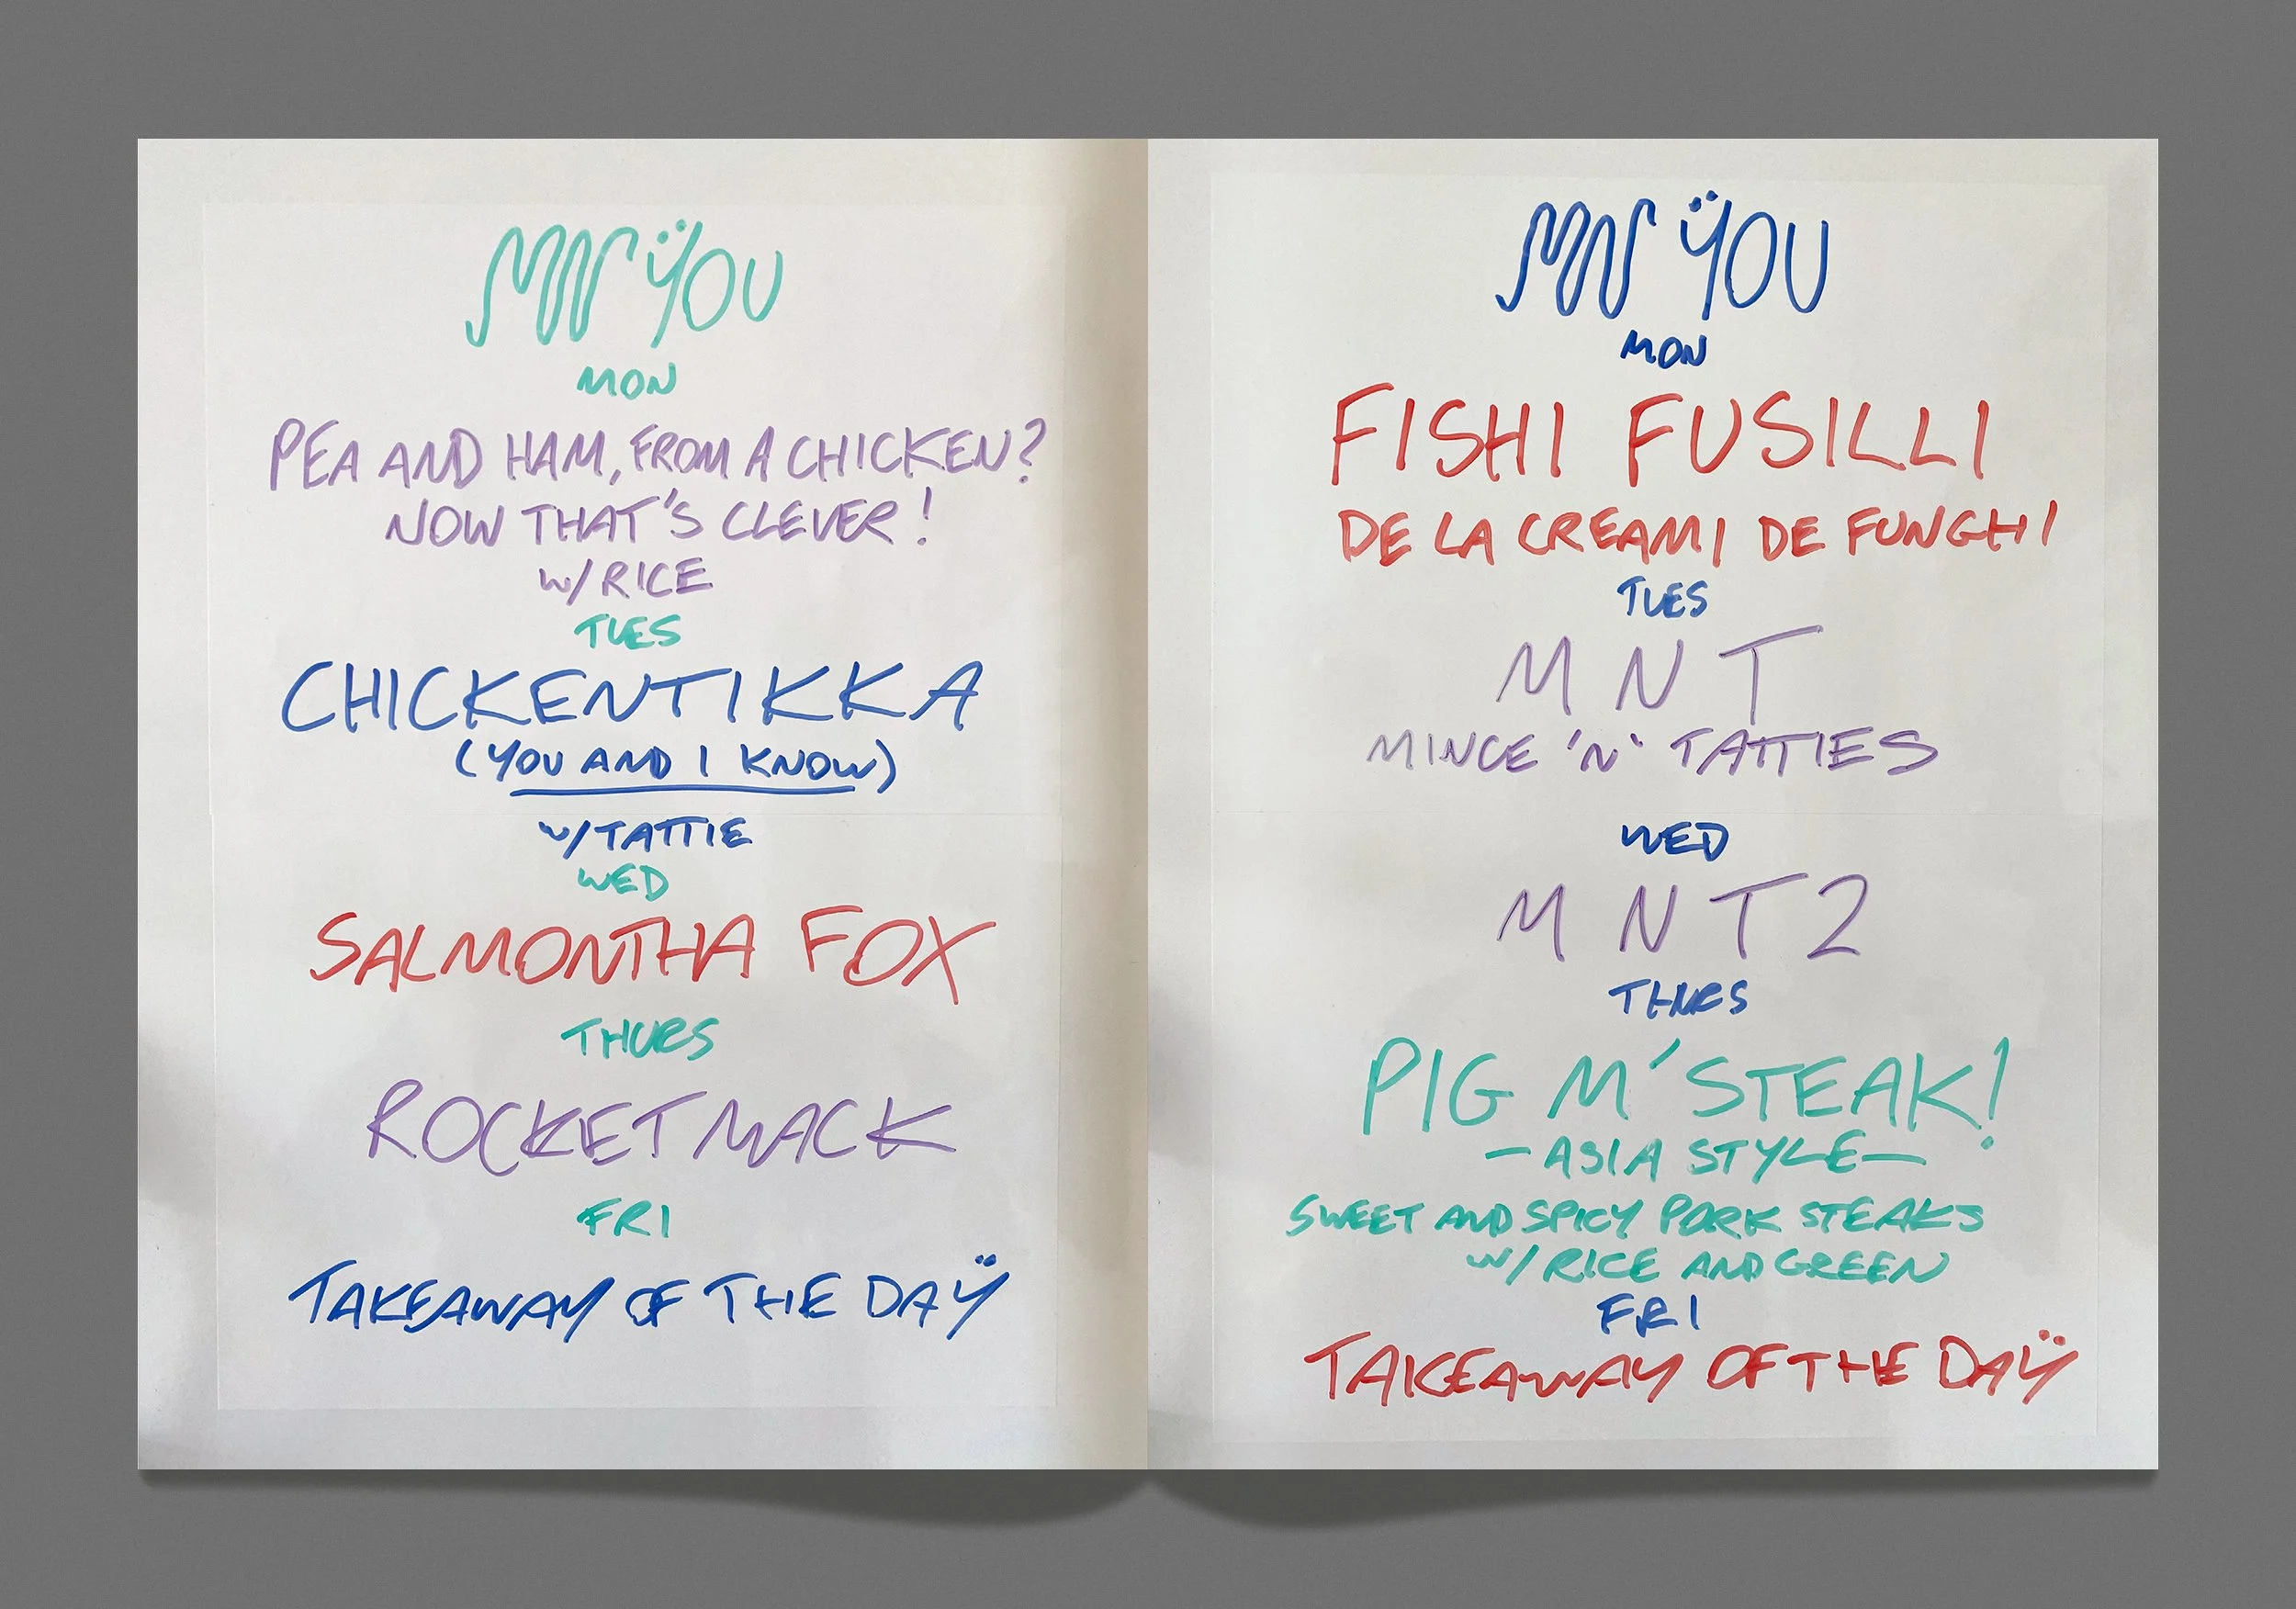 MN ŸOU
MON
PEA AND HAM, FROM A CHICKEN?
NOW THAT'S CLEVER!
W/ RICE
TUES
CHICKENTIKKA
(YOU AND I KNOW)
W/ TATTIE
WED
SALMONTHA FOX
THURS
ROCKET MACK
FRI
TAKEAWAY OF THE DAŸ
MN ŸOU
MON
FISHI FUSILLI
DE LA CREAMI DE FUNGHI
TUES
M N T
MINCE 'N' TATTIES
WED
M N T 2
THURS
PIG M'STEAK!
- ASIA STYLE -
SWEET AND SPICY PORK STEAKS
W/ RICE AND GREEN
FRI
TAKEAWAY OF THE DAŸ